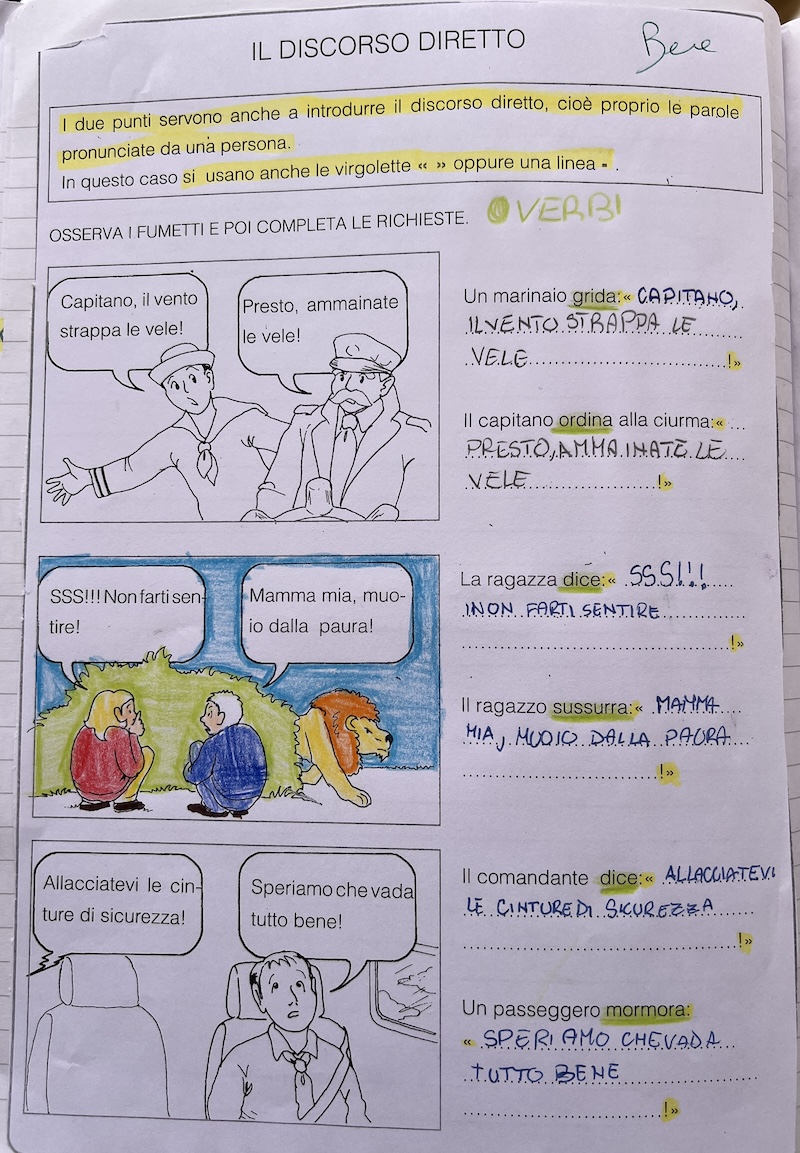 IL DISCORSO DIRETTO
Bene
I due punti servono anche a introdurre il discorso diretto, cioè proprio le parole
pronunciate da una persona.
In questo caso si usano anche le virgolette « » oppure una linea - .
OSSERVA I FUMETTI E POI COMPLETA LE RICHIESTE.
VERBI
Capitano, il vento
strappa le vele!
Presto, ammainate
le vele!
Un marinaio grida:« CAPITANO,
IL VENTO STRAPPA LE
VELE !»
Il capitano ordina alla ciurma:«
PRESTO, AMMAINATE LE
VELE !»
SSS!!! Non farti sen-
tire!
Mamma mia, muo-
io dalla paura!
La ragazza dice:« SSS!!!
NON FARTI SENTIRE
!»
Il ragazzo sussurra:« MAMMA
MIA, MUOIO DALLA PAURA
!»
Allacciatevi le cin-
ture di sicurezza!
Speriamo che vada
tutto bene!
Il comandante dice:« ALLACCIATEVI
LE CINTURE DI SICUREZZA
!»
Un passeggero mormora:
« SPERIAMO CHE VADA
TUTTO BENE
!»